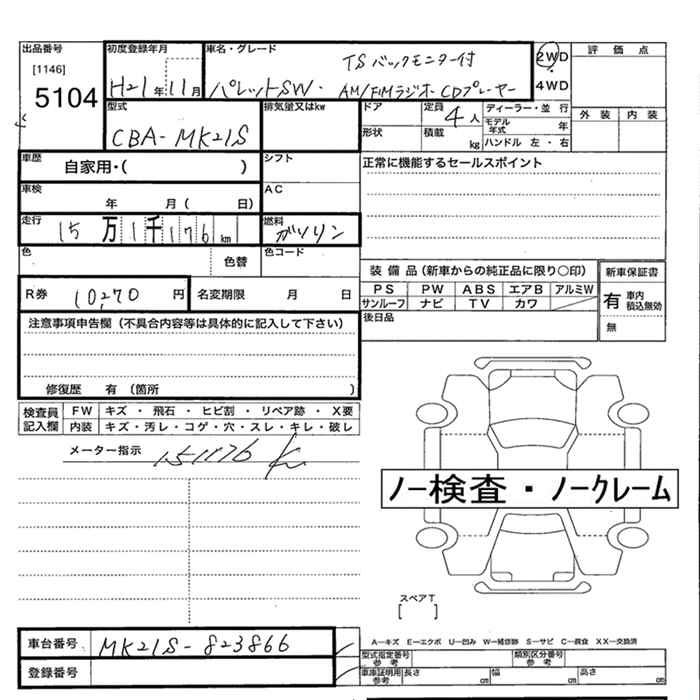 出品番号 初度登録年月 車名・グレード TSバックモニター付 2WD 評価点
[1146]
5104 H21年11月 パレットSW・ AM/FMラジオ・CDプレーヤー 4WD
型式 排気量又はkw ドア 定員 4人 ディーラー・並行 外装 内装
CBA-MK21S 形状 積載 kg モデル年式 年
ハンドル 左・右
車歴 自家用・( ) シフト 正常に機能するセールスポイント
車検 年 月( 日) AC
走行 15万1千176km 燃料 ガソリン
色 色替 色コード
装備品(新車からの純正品に限り○印) 新車保証書
R券 10,270円 名変期限 月 日 PS PW ABS エアB アルミW 有 車内積込無効
サンルーフ ナビ TV カワ 無
注意事項申告欄(不具合内容等は具体的に記入して下さい) 後日品
修復歴 有 (箇所 )
検査員記入欄 FW キズ・飛石・ヒビ割・リペア跡・X要
内装 キズ・汚レ・コゲ・穴・スレ・キレ・破レ
メーター指示 151176 K
ノー検査・ノークレーム
スペアT
[ ]
A−キズ E−エクボ U−凹み W−補修跡 S−サビ C−腐食 XX−交換済
車台番号 MK21S-823866 型式指定番号 参考 類別区分番号 参考
登録番号 車庫証明用 参考 長さ cm 幅 cm 高さ cm